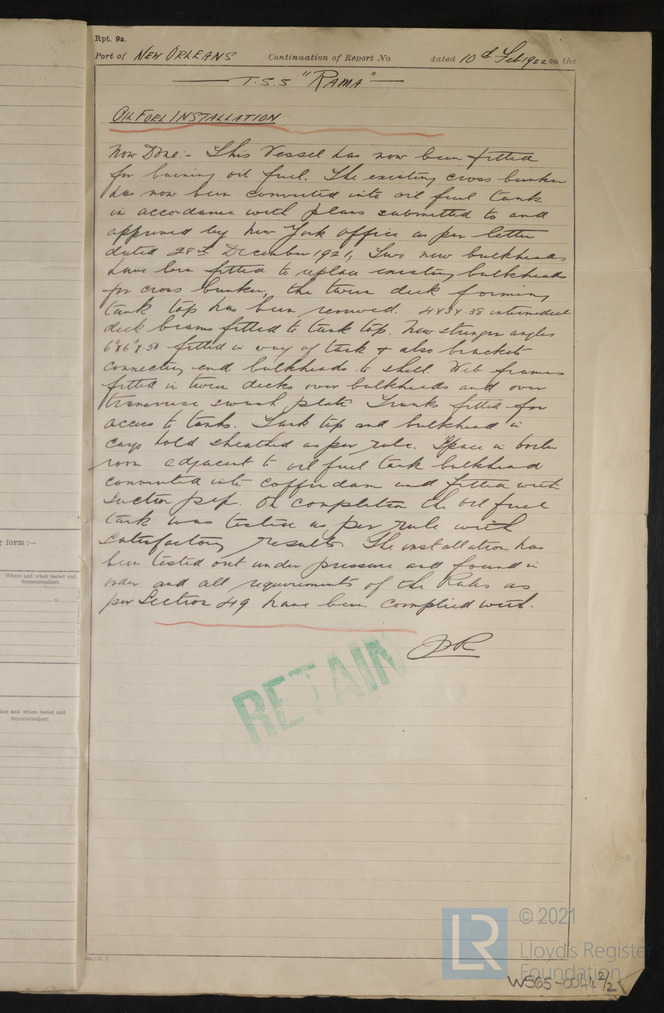 Rpt. 9a.
Port of NEW ORLEANS Continuation of Report No. dated 10th Feb 1922 on the
T.S.S "RAMA"
OIL FUEL INSTALLATION
Now Done:- This Vessel has now been fitted
for burning oil fuel. The existing cross bunker
has now been converted into oil fuel tank
in accordance with plans submitted to and
approved by New York office as per letter
dated 28th December 1921, Two new bulkheads
have been fitted to replace existing bulkheads
for cross bunker, the tween deck forming
tank top has been renewed. intermediate
deck beams fitted to tank top. New stringer angles
6"x6"x.50 fitted in way of tank & also brackets
connecting end bulkheads to shell. Web frames
fitted in tween decks over bulkheads and over
transverse swash plate. Trunks fitted for
access to tanks. Tank top and bulkhead in
cargo hold sheathed as per rule. Space in boiler
room adjacent to oil fuel tank bulkhead
converted into cofferdam and fitted with
suction pipe. On completion the oil fuel
tank was tested as per rule with
satisfactory results. The installation has
been tested out under pressure and found in
order and all requirements of the Rules as
per Section 49 have been complied with.
JR
RETAIN
g form:—
Where and when tested and
Superintendent.
here and when tested and
Superintendent.
LR
© 2021
Lloyd's Register
Foundation
W565-0042 2/2